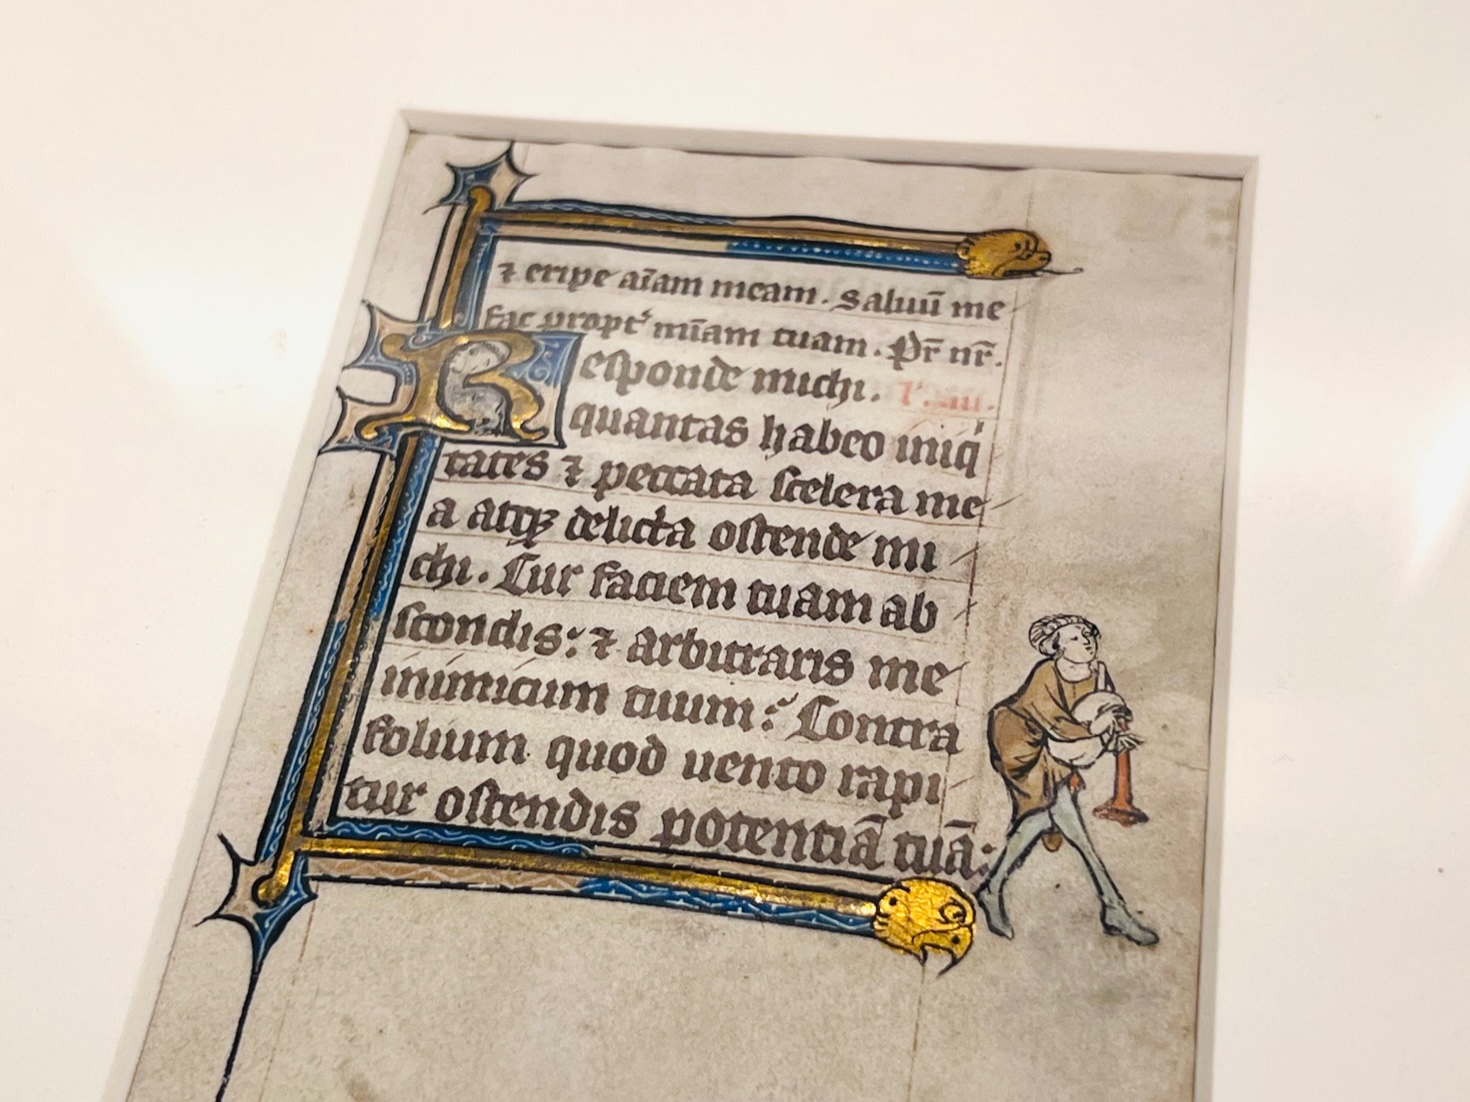 ⁊ eripe aīam meam. Saluū me
fac propt᾽ mīam tuam. Pr̄ nr̄.
Responde michi.
quantas habeo iniq̇
tates ⁊ peccata scelera me
a atqꝫ delicta ostende mi
chi. Cur faciem tuam ab
scondis: ⁊ arbitraris me
inimicum tuum: Contra
folium quod uento rapi
tur ostendis potentiā tuā: